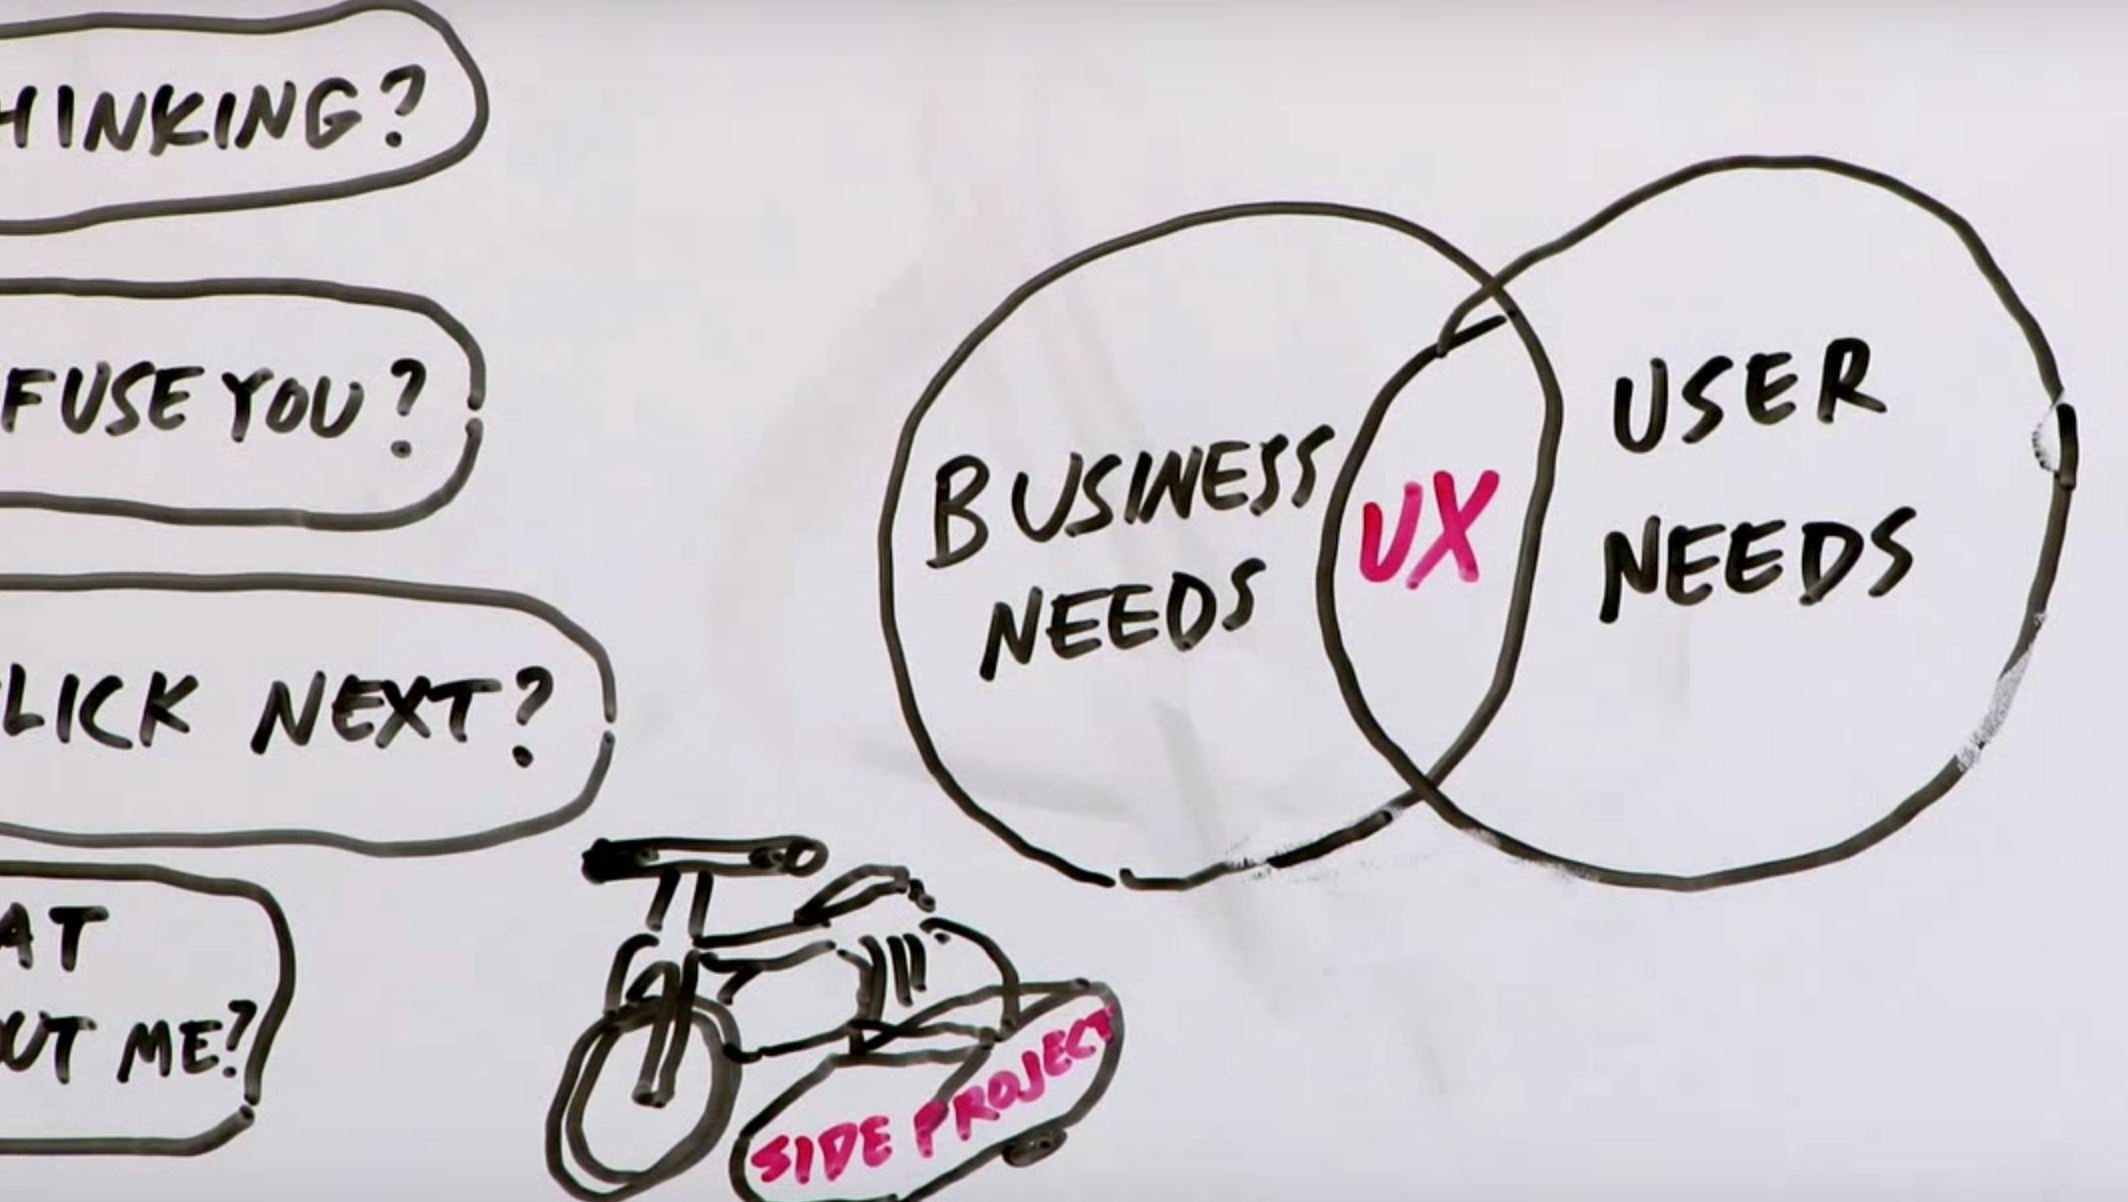 HINKING?
FUSE YOU?
LICK NEXT?
AT
UT ME?
BUSINESS
NEEDS
UX
USER
NEEDS
SIDE PROJECT